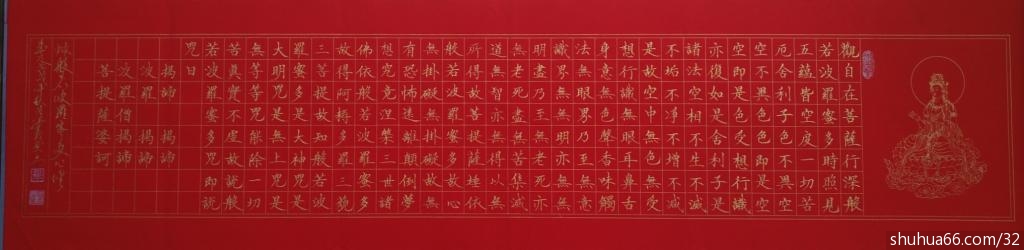 觀自在菩薩行深般
若波羅蜜多時照見
五蘊皆空度一切苦
厄舍利子色不異空
空不異色色即是空
空即是色受想行識
亦復如是舍利子是
諸法空相不生不滅
不垢不淨不增不減
是故空中無色無受
想行識無眼耳鼻舌
身意無色聲香味觸
法無眼界乃至無意
識界無無明亦無無
明盡乃至無老死亦
無老死盡無苦集滅
道無智亦無得以無
所得故菩提薩埵依
般若波羅蜜多故心
無掛礙無掛礙故無
有恐怖遠離顛倒夢
想究竟涅槃三世諸
佛依般若波羅蜜多
故得阿耨多羅三藐
三菩提故知般若波
羅蜜多是大神咒是
大明咒是無上咒是
無等等咒能除一切
苦真實不虛故說般
若波羅蜜多咒即說
咒曰
揭諦 揭諦
波羅 揭諦
波羅僧揭諦
菩提薩婆訶
shuhua66.com/32